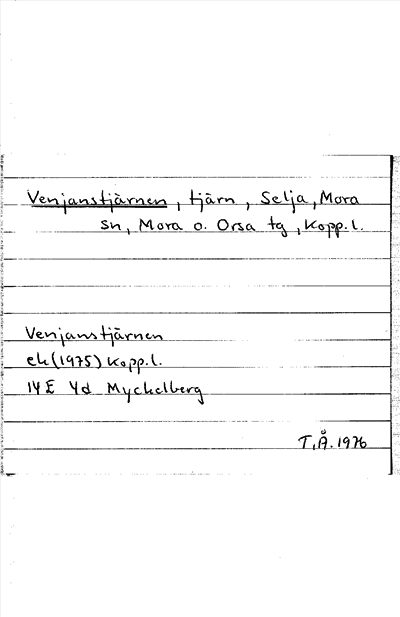 Venjanstjärnen, tjärn, Selja, Mora
sn, Mora o. Orsa tg, Kopp.l.
Venjanstjärnen
ek(1975) Kopp.l.
14E 4d Myckelberg
T.Å. 1976